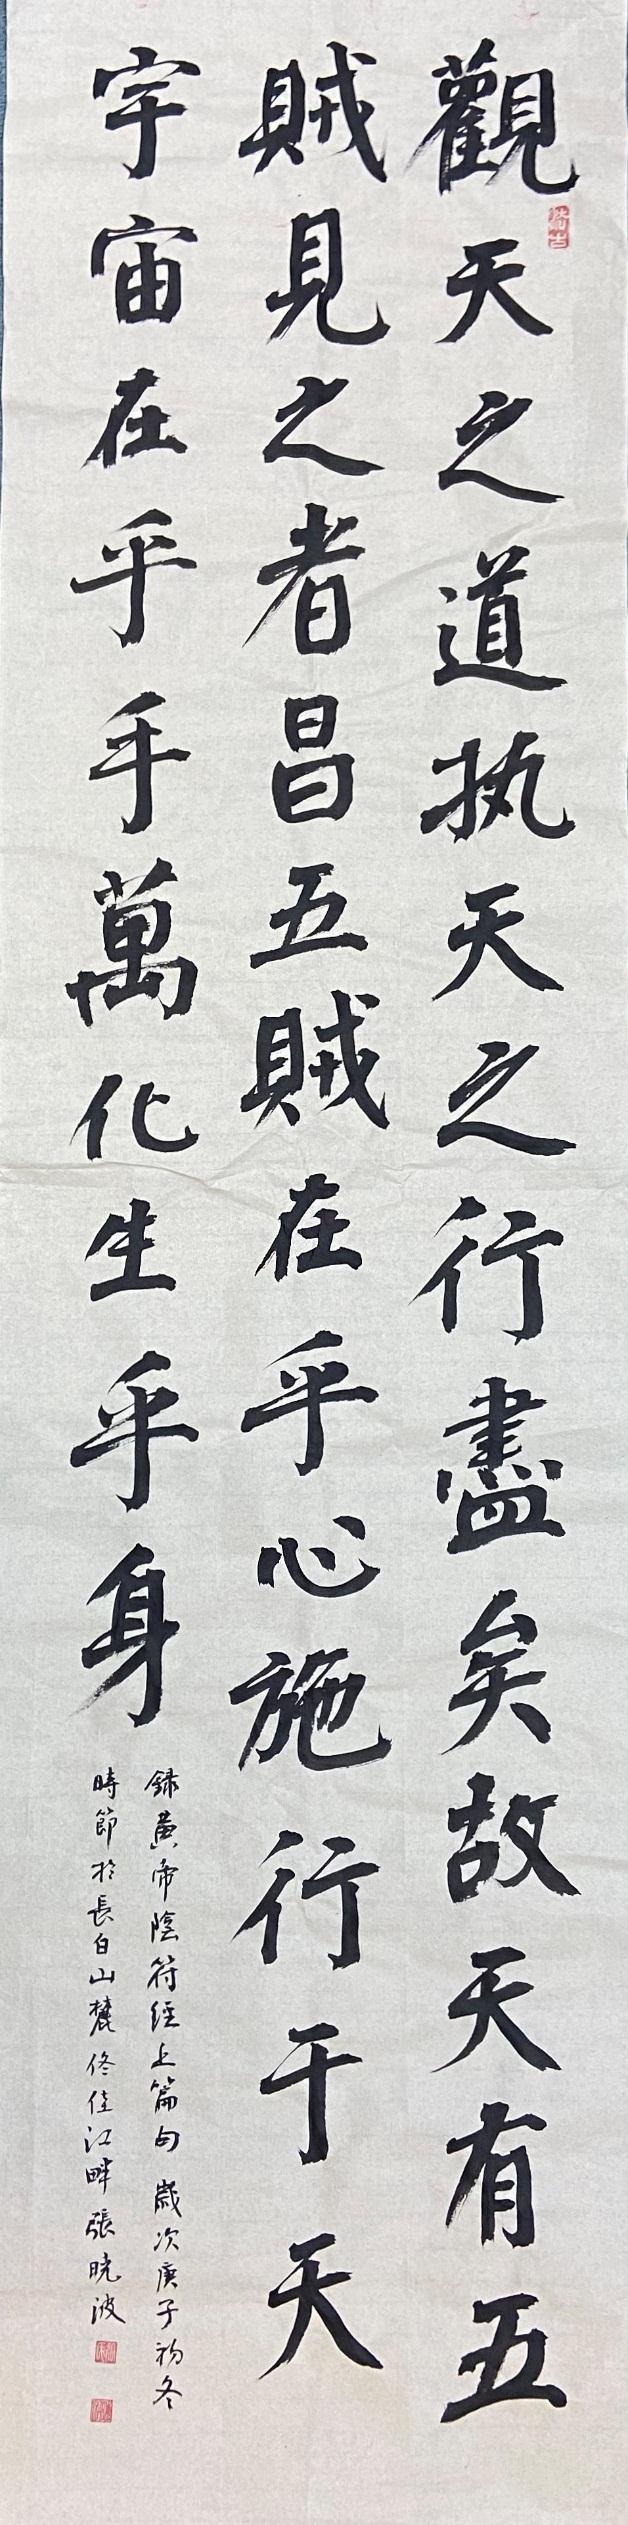 觀天之道执天之行盡矣故天有五
賊見之者昌五賊在乎心施行于天
宇宙在乎手萬化生乎身
録黄帝陰符經上篇句 歲次庚子初冬
時節於長白山麓佟佳江畔張曉波